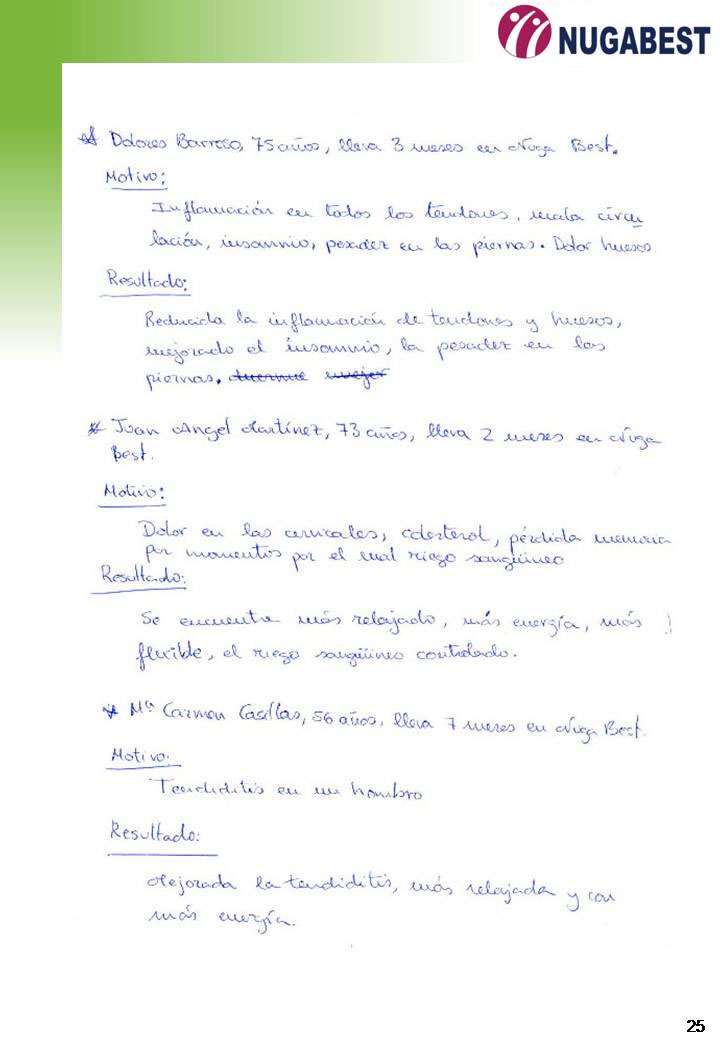 NUGABEST
* Dolores Barroso, 75 años, lleva 3 meses en Nuga Best.
Motivo:
Inflamación en todos los tendones, mala circu
lación, insomnio, pesadez en las piernas. Dolor huesos.
Resultado:
Reducida la inflamación de tendones y huesos,
mejorado el insomnio, la pesadez en las
piernas. duerme mejor
* Juan Angel Martínez, 73 años, lleva 2 meses en Nuga
Best.
Motivo:
Dolor en las cervicales, colesterol, pérdida memoria
por momentos por el mal riego sangüineo
Resultado:
Se encuentra más relajado, más energía, más
flexible, el riego sangüineo controlado.
* Mª Carmen Casillas, 56 años, lleva 7 meses en Nuga Best.
Motivo:
Tendiditis en un hombro
Resultado:
Mejorada la tendiditis, más relajada y con
más energía.
25